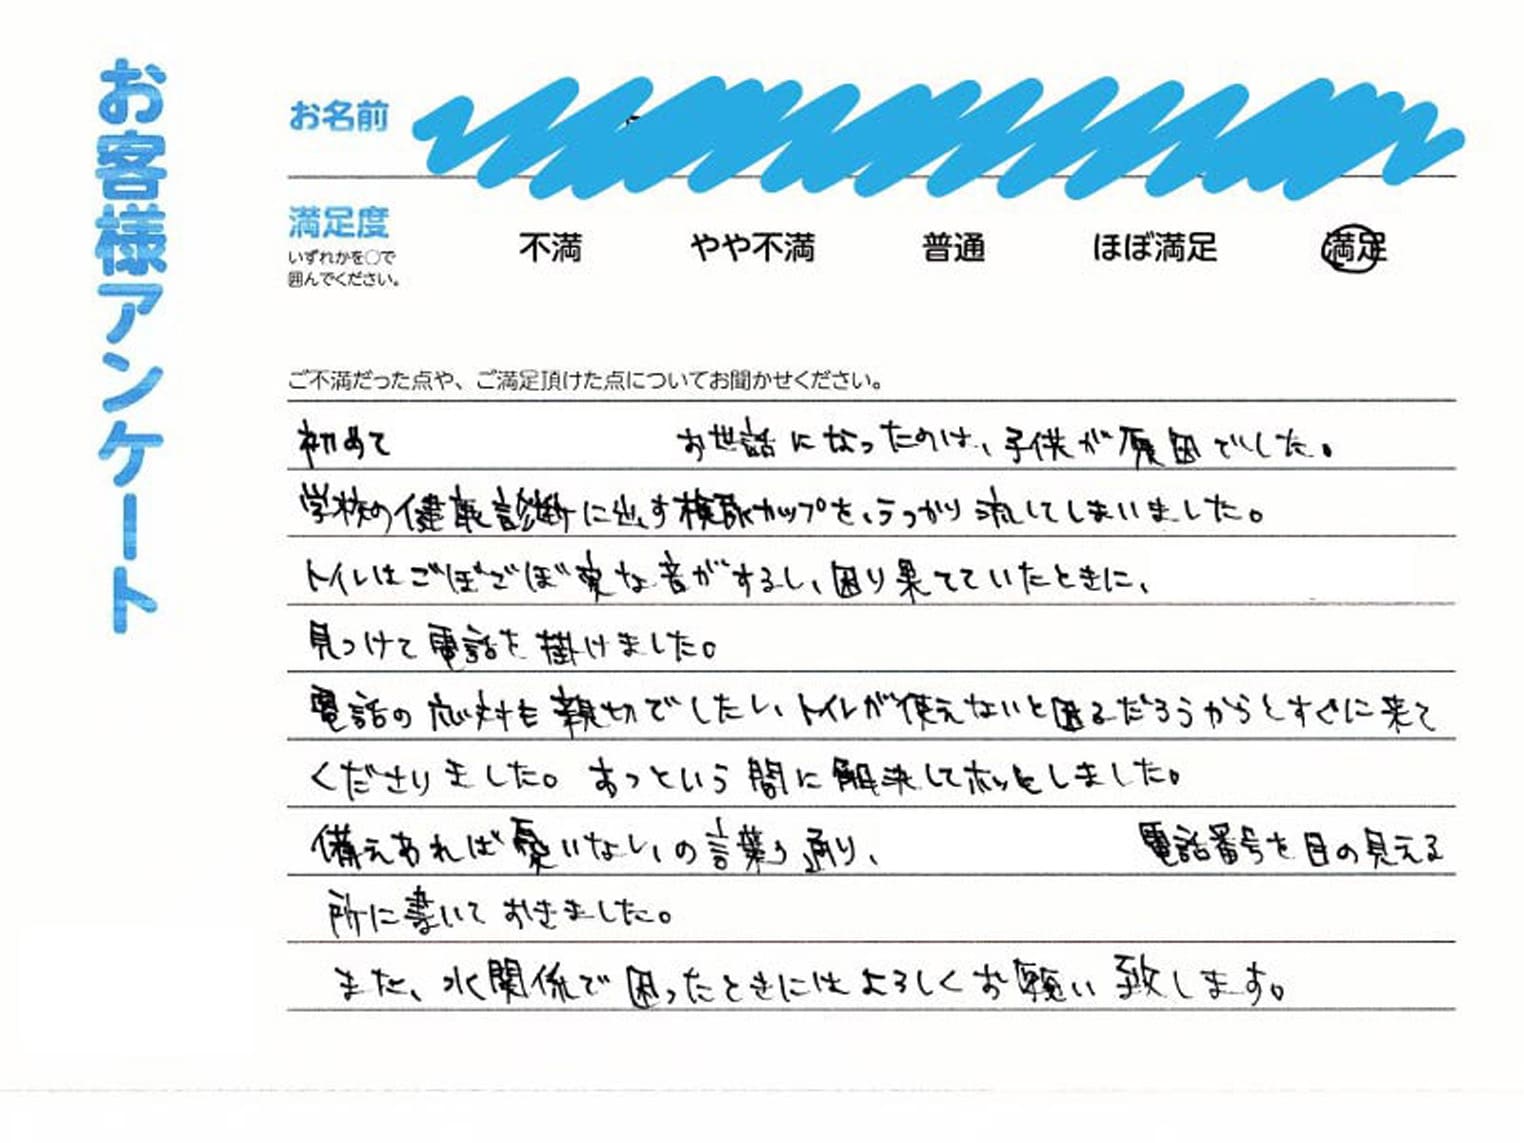 お客様アンケート
お名前
満足度
いずれかを○で
囲んでください。
不満 やや不満 普通 ほぼ満足 満足
ご不満だった点や、ご満足頂けた点についてお聞かせください。
初めて お世話になったのは、子供が原因でした。
学校の健康診断に出す検尿カップを、うっかり流してしまいました。
トイレはごぼごぼ変な音がするし、困り果てていたときに、
見つけて電話を掛けました。
電話の応対も親切でしたし、トイレが使えないと困るだろうからとすぐに来て
くださりました。あっという間に解決してホッとしました。
備えあれば憂いなし、の言葉通り、 電話番号を目の見える
所に書いておきました。
また、水関係で困ったときにはよろしくお願い致します。